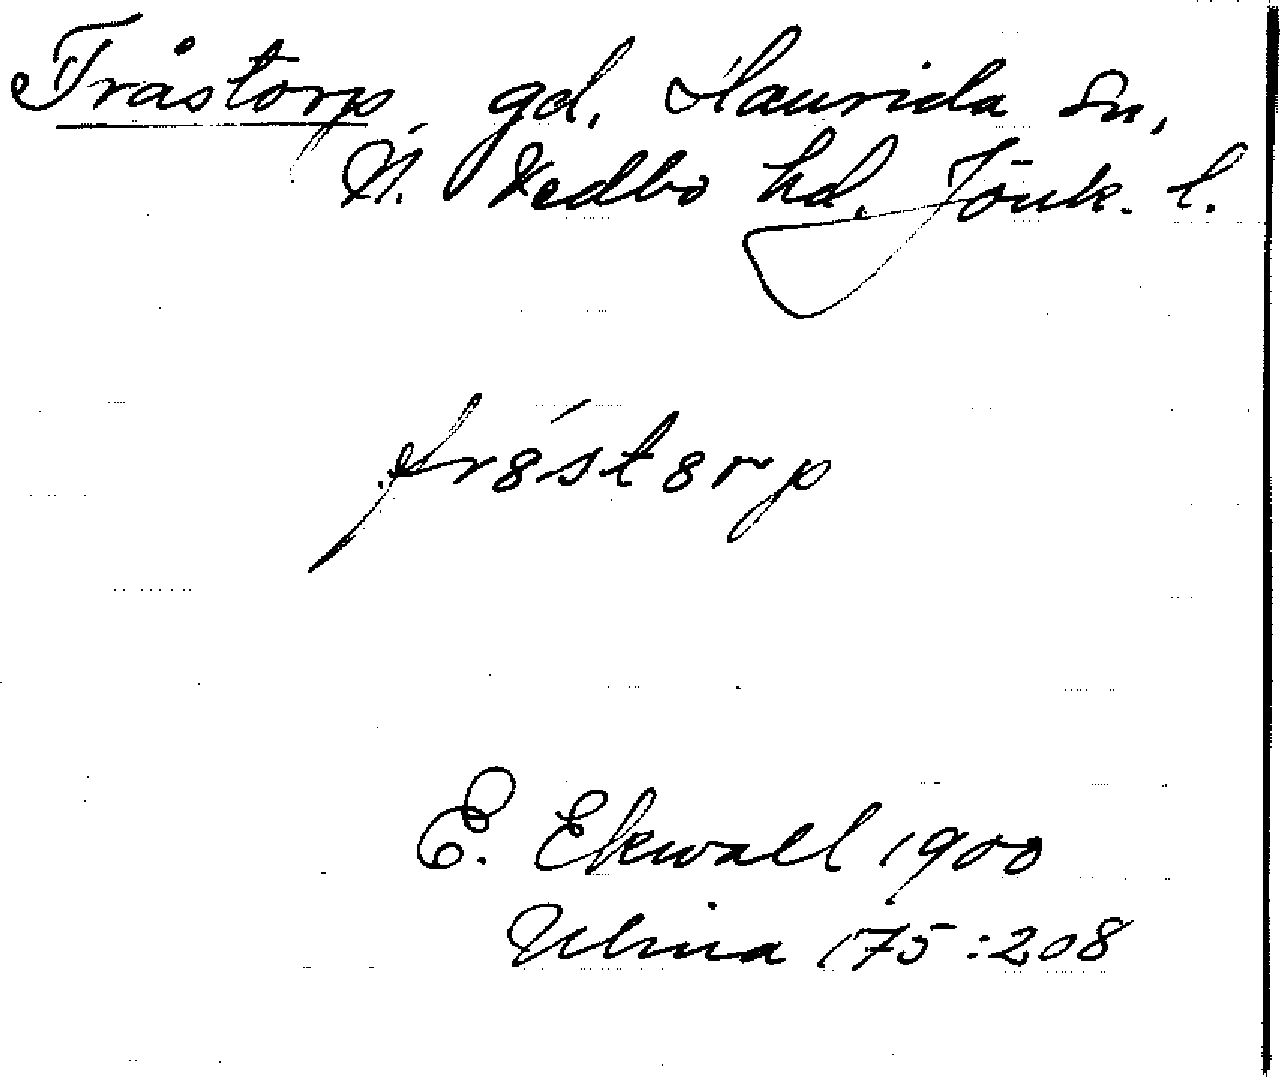 Tråstorp, gd, Haurida sn,
N. Vedbo hd. Jönk. l.
tr8́st8rp
E. Ekwall 1900
Ulma 175:208